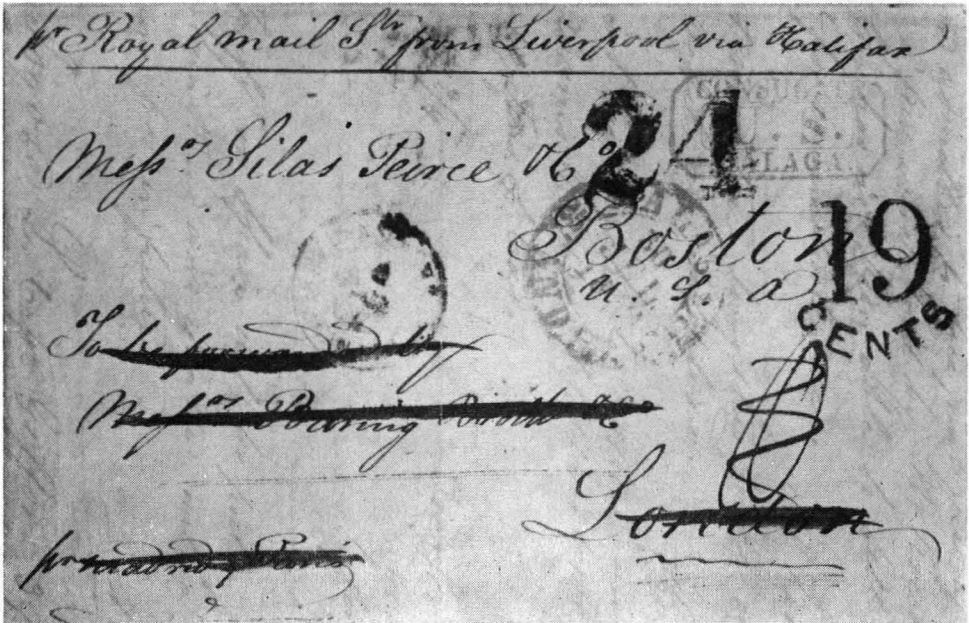 pr Royal mail Str from Liverpool via Halifax
CONSULAT
U. S.
MALAGA.
24
Messrs Silas Peirce & Co
Boston
U. S. A
19
CENTS
To be forwarded by
Messrs Baring Broths & Co
London
pr Madrid & Paris